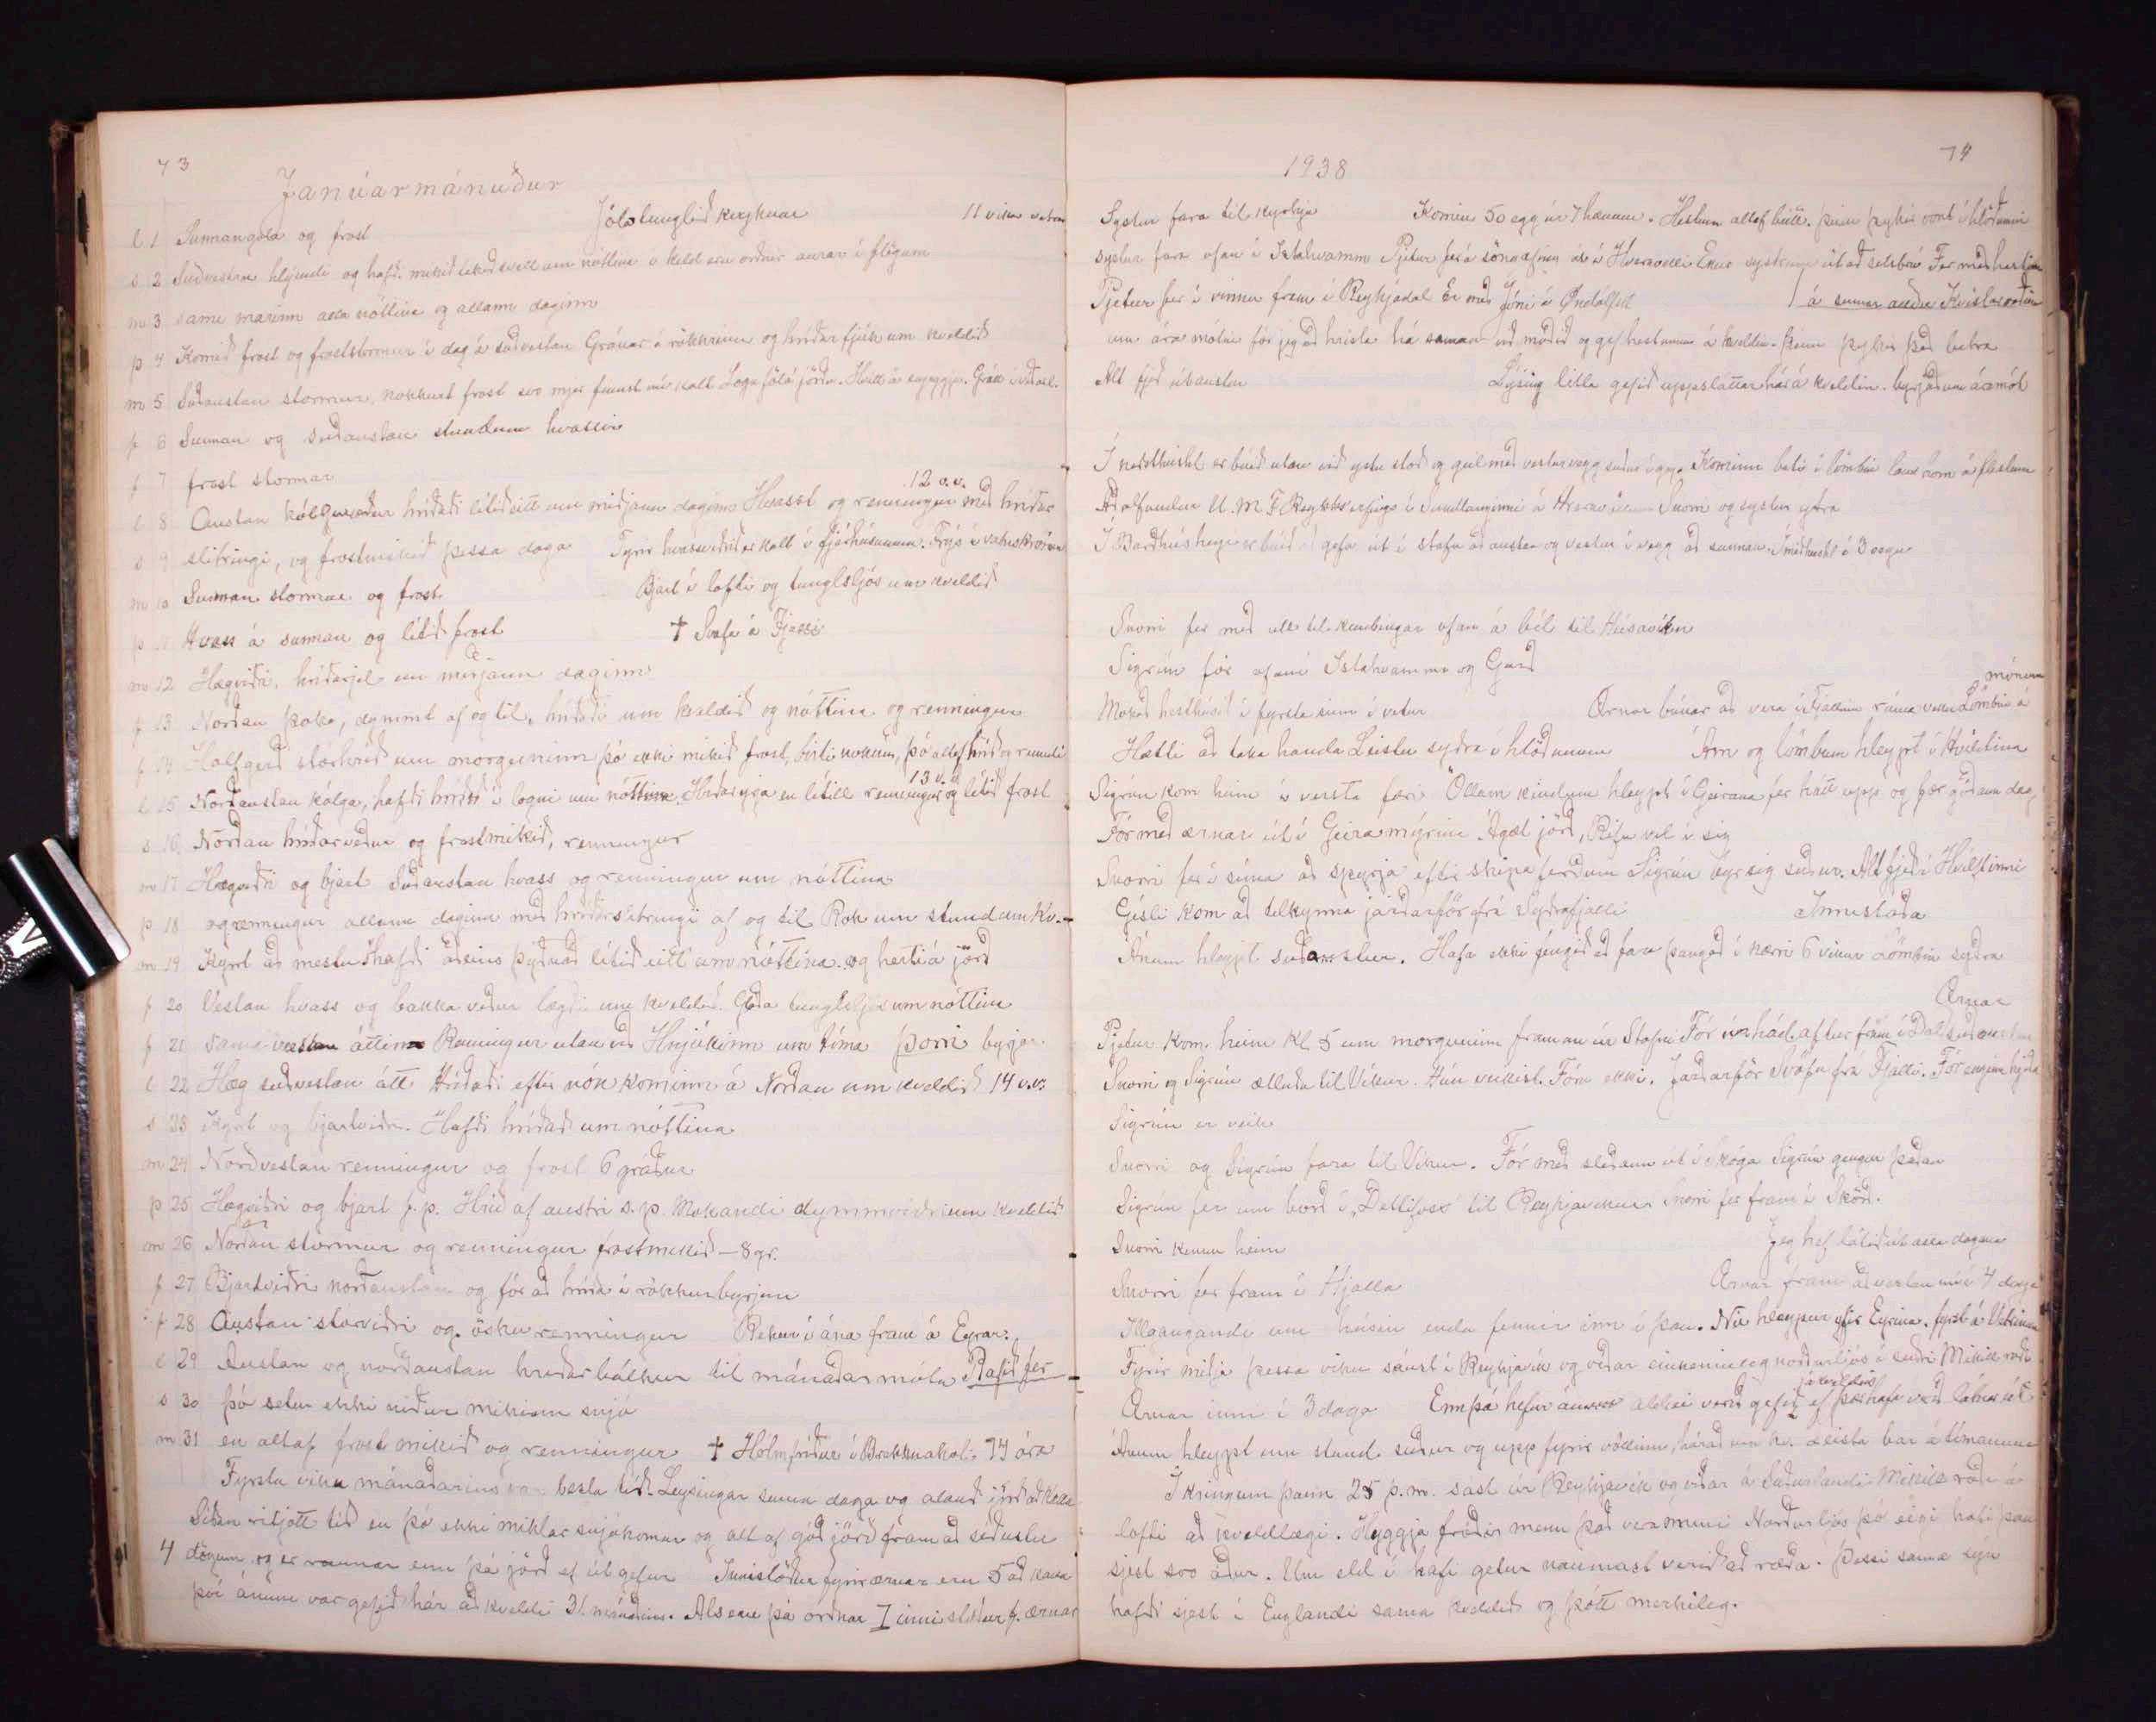 73
Janúarmánuður
Jólatunglið kveyknar 11 vika vetrar
l 1 Sunnangola og frost
s 2 Suðvestan hlýindi og hafð. mikið tekið svell um nóttina í held eru orðnir aurar í flögum
m 3 sami marinn alla nóttina og allann daginn
þ 4 Komið frost og froststormur í dag á suðvestan Gránar í rökkrinu og hríðarfjúk um kveldið
m 5 Suðaustan stormur, nokkurt frost svo mjer finnst nú kalt Loga föl á jörðu.
f 6 Sunnan og suðaustan stundum hvassir
f 7 frost stormar
12 v.v.
l 8 Austan kólguveður hríðaði lítið eitt um miðjann daginn Hvasst og renningur með hríðar
s 9 slitringi, og frostmikið þessa daga Fyrir hvassviðrið er kalt í fjárhúsunum. Frýs í vatnskrónni
m 10 Sunnan stormar og frost Bjart í lofti og tunglsljós um kveldið
þ 11 Hvass á sunnan og lítið frost † Svafa á Fjalli
m 12 Hægviðri, hríðarjel um miðjann daginn
f 13 Norðan þoka, dymmt af og til, hríðaði um kveldið og nóttina og renningur
f 14 Hálfgerð stórhríð um morguninn þó ekki mikið frost, birti nokkuð, þó altaf hríð og renndi
13 v.v.
l 15 Norðaustan kólga, hafði hríðað í logni um nóttina. Hríðarýja en lítill renningur og lítið frost
s 16 Norðan hríðarveður og frostmikið, renningur
m 17 Hægviðri og bjart Suðaustan hvass og renningur um nóttina
þ 18 og renningur allann daginn með hríðarslitringi af og til Rok um stund um kv.
m 19 Kyrt að mestu Hafði aðeins þýðnað lítið eitt um nóttina og herti á jörð
f 20 Vestan hvass og bakka veður lægði um kveldið. Góða tunglsljós um nóttina
f 21 sama vestan áttin Renningur utan við Hnjúkinn um tíma Þorri byrjar
l 22 Hæg suðvestan átt Hríðaði eftir nón kominn á Norðan um kveldið 14 v.v.
s 23 Kyrt og bjartviðri. Hafði hríðað um nóttina
m 24 Norðvestan renningur og frost 6 gráður
þ 25 Hægviðri og bjart f.p. Hríð af austri s.p. Mokandi dymmviðri um kveldið
m 26 Norðan stormur og renningur frostmikið – 8 gr.
f 27 Bjartviðri norðaustan og fór að hríða í rökkurbyrjun
f 28 Austan stórviðri og öskurenningur Rekur í ána fram á Eyrar.
l 29 Austan og norðaustan hríðarbálkur til mánaðarmóta
s 30 þó setur ekki niður mikinn snjó
m 31 en altaf frostmikið og renningur † Hólmfríður í Brekknakoti. 74 ára
Fyrsta vika mánaðarins var besta tíð. Leysingar suma daga og alauð jörð að kalla
Síðan ritjótt tíð en þó ekki miklar snjókomur og alt af góð jörð fram að síðustu
4 dögum, og er raunar enn þá jörð ef út gefur Innistöður fyrir ærnar eru 5 að kalla
því ánum var gefið hár að kveldi 31. mánaðarins. Als eru þá orðnar 7 innistöður f. ærnar
1938
74
Systur fara til kyrkju Komin 50 egg úr 7 hænum. Hestum altaf býtt. þeim þykir vont í hlöðunni
systur fara ofan í Ystahvamm Pjetur fer á söngæfing út í Hveravelli Ekur systrum út að selsbrú Fer með hestinn
Pjetur fer í vinnu fram í Reykjadal Er með Jóni á Öndólfsst. á sunnar auðu
um áramótin fór jeg að hrista há saman við moðið og gef hestunum á kveldin. þeim þykir það betra
Alt fjeð útaustur Lýsing litla gefið uppsláttarhá á kveldin. byrjað um áramót
Í norðthúsht. er búið utan við ystu stoð og geil með vesturvegg Kominn bati í lömbin
Aðalfundur U.M.F. Reykhverfinga í Sundlauginni á Hveravöllum Snorri og systur ytra
Í Barðhúsheyi er búið að gefa út í stafn að austan og vestur í vegg að sunnan.
Snorri fer með ull til kembingar ofan á bíl til Húsavíkur
Sigrún fór ofaní Ystahvamm og Garð
Mokað hesthúsið í fyrsta sinn í vetur Ærnar búnar að vera í Fjallinu rúma viku Lömbin á mónum
Hætti að taka handa Leistu syðra í hlöðunum Ám og lömbum hleypt í Hvilftina
Sigrún kom heim í versta færi Öllum kindum hleypt í Geirana fer hátt upp og fær góðann dag,
Fór með ærnar út í Geiramýrina Ágæt jörð, Rífa vel í sig
Snorri fer í síma að spyrja eftir skipaferðum Sigrún býr sig suður. Alt fjeð í Hvilftinni
Gísli kom að tilkynna jarðarför frá Syðrafjalli Innistaða
Ánum hleypt suðaustur. Hafa ekki fengið að fara þangað í nærri 6 vikur Lömbin syðra
Ærnar
Pjetur kom heim kl. 5 um morguninn framan úr Stafni Fór aftur fram í Dal suðaustur
Snorri og Sigrún ætluðu til Víkur. Hún veikist. Fóru ekki. Jarðarför Svöfu frá Fjalli. Fór enginn hjeðan
Sigrún er veik
Snorri og Sigrún fara til Víkur. Fór með sleðann út í Skóga Sigrún gengur þaðan
Sigrún fer um borð í „Dettifoss" til Reykjavíkur Snorri fer fram í Skörð.
Snorri kemur heim Jeg hef látið út alla dagana
Snorri fer fram í Hjalla Ærnar fram að vestan nú í 4 daga
Illgangandi um húsin enda fennir inn í þau. Nú hleypur yfir Eyrina.
Fyrir miðja þessa viku sáust í Reykjavík og víðar einkennileg norðurljós í suðri Mikill roði
Ærnar inni í 3 daga Ennþá hefur ánum aldrei verið gefið á kveldin ef þær hafa verið látnar út
Ánum hleypt um stund suður og upp fyrir völlinn, hárað um kv. Leista bar á tímanum
Í kringum þann 25 þ.m. sást úr Reykjavík og víðar á Suðurlandi Mikill roði á
lofti að kveldlægi. Hyggja fróðir menn það vera muni Norðurljós þó eigi hafi þau
sjest svo áður. Um eld í hafi getur naumast verið að ræða. Þessi sama sýn
hafði sjest í Englandi sama kveldið og þótt merkileg.